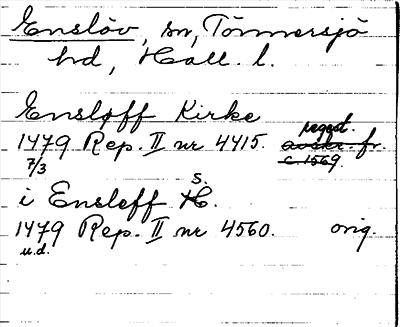 Enslöv, sn, Tönnersjö
hd, Hall. l.
Ensløff Kirke
1479 Rep. II nr 4415. regest. avskr. fr.
7/3 c. 1569.
i Ensleff H. S.
1479 Rep. II nr 4560. orig.
u.d.